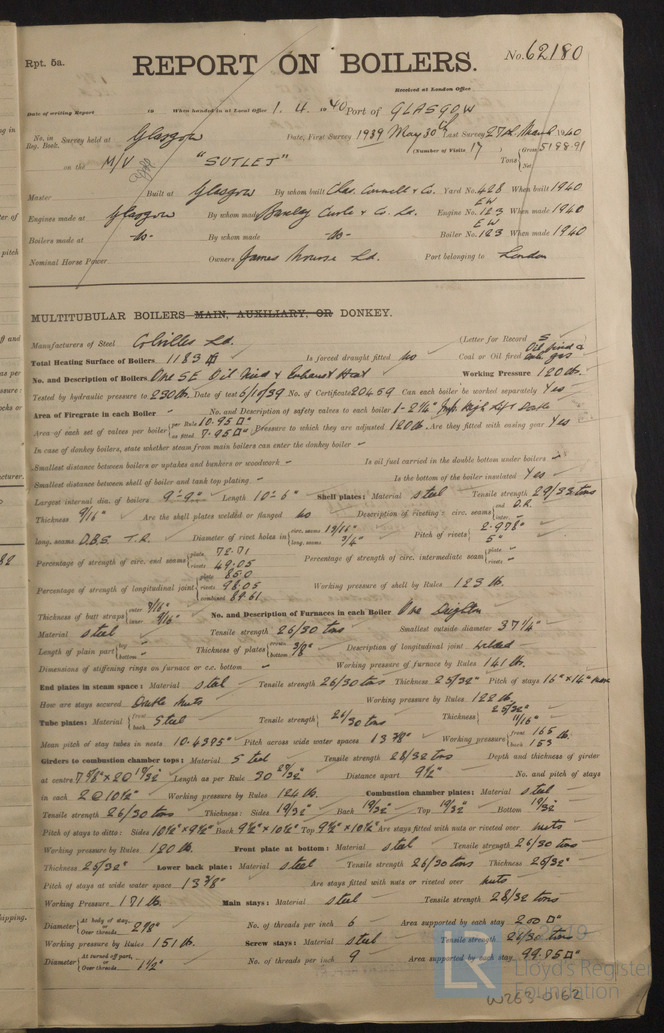 Rpt. 5a.
REPORT ON BOILERS.
No. 62180
Received at London Office
Date of writing Report 19 When handed in at Local Office 1. 4. 1940 Port of GLASGOW
No. in Reg. Book. Survey held at Glasgow Date, First Survey 1939 May 30th Last Survey 27th March 1940
on the M/V "SUTLEJ" (Number of Visits 17) Tons Gross 5188.91 Net
Master Built at Glasgow By whom built Chas. Connell & Co. Yard No. 428 When built 1940
Engines made at Glasgow By whom made Barclay Curle & Co. Ld. Engine No. EW 123 When made 1940
Boilers made at -do- By whom made -do- Boiler No. EW 123 When made 1940
Nominal Horse Power Owners James Nourse Ld. Port belonging to London
MULTITUBULAR BOILERS MAIN, AUXILIARY, OR DONKEY.
Manufacturers of Steel Colvilles Ld. (Letter for Record S
Total Heating Surface of Boilers 1183 Is forced draught fitted No Coal or Oil fired Oil fired & exh. gas
No. and Description of Boilers One SE Oil Fired & Exhaust Heat Working Pressure 120 lb.
Tested by hydraulic pressure to 230 lb. Date of test 5/10/39 No. of Certificate 20459 Can each boiler be worked separately Yes
Area of Firegrate in each Boiler - No. and Description of safety valves to each boiler 1-2¼" High Lift
Area of each set of valves per boiler per Rule 10.95 □" as fitted 7.95 □" Pressure to which they are adjusted 120 lb. Are they fitted with easing gear Yes
In case of donkey boilers, state whether steam from main boilers can enter the donkey boiler -
Smallest distance between boilers or uptakes and bunkers or woodwork - Is oil fuel carried in the double bottom under boilers -
Smallest distance between shell of boiler and tank top plating - Is the bottom of the boiler insulated Yes
Largest internal dia. of boilers 9'-9" Length 10'-6" Shell plates: Material steel Tensile strength 29/33 tons
Thickness 9/16" Are the shell plates welded or flanged No Description of riveting: circ. seams end D.R. inter. -
long. seams D.B.S. T.R. Diameter of rivet holes in circ. seams 13/16" long. seams 3/4" Pitch of rivets 2.978" 5"
Percentage of strength of circ. end seams plate 72.71 rivets 49.05 Percentage of strength of circ. intermediate seam plate - rivets -
Percentage of strength of longitudinal joint plate 85.0 rivets 98.05 combined 89.61 Working pressure of shell by Rules 123 lb
Thickness of butt straps outer 7/16" inner 9/16" No. and Description of Furnaces in each Boiler One Deighton
Material steel Tensile strength 26/30 tons Smallest outside diameter 37¼"
Length of plain part top - bottom - Thickness of plates crown bottom 3/8" Description of longitudinal joint welded
Dimensions of stiffening rings on furnace or c.c. bottom - Working pressure of furnace by Rules 141 lb.
End plates in steam space: Material steel Tensile strength 26/30 tons Thickness 25/32" Pitch of stays 16" x 14"
How are stays secured Double nuts Working pressure by Rules 122 lb.
Tube plates: Material front back Steel Tensile strength 26/30 tons Thickness 25/32" 11/16"
Mean pitch of stay tubes in nests 10.4375" Pitch across wide water spaces 13 3/8" Working pressure front 165 back 153 lb.
Girders to combustion chamber tops: Material steel Tensile strength 28/32 tons Depth and thickness of girder
at centre Length as per Rule Distance apart 9½" No. and pitch of stays
in each 2 @ 10½" Working pressure by Rules 124 lb. Combustion chamber plates: Material steel
Tensile strength 26/30 tons Thickness: Sides 19/32" Back 19/32" Top 19/32" Bottom 19/32"
Pitch of stays to ditto: Sides 10½" x 9½" Back 9½" x 10½" Top 9½" x 10½" Are stays fitted with nuts or riveted over nuts
Working pressure by Rules 120 lb. Front plate at bottom: Material steel Tensile strength 26/30 tons
Thickness 25/32" Lower back plate: Material steel Tensile strength 26/30 tons Thickness 25/32"
Pitch of stays at wide water space 13 3/8" Are stays fitted with nuts or riveted over nuts
Working Pressure 171 lb. Main stays: Material steel Tensile strength 28/32 tons
Diameter At body of stay, or Over threads No. of threads per inch 6 Area supported by each stay 200 □"
Working pressure by Rules 151 lb. Screw stays: Material steel Tensile strength 26/30 tons
Diameter At turned off part, or Over threads 1½" No. of threads per inch 9 Area supported by each stay 99.75 □"
LR
Lloyd's Register
Foundation
W263-0162